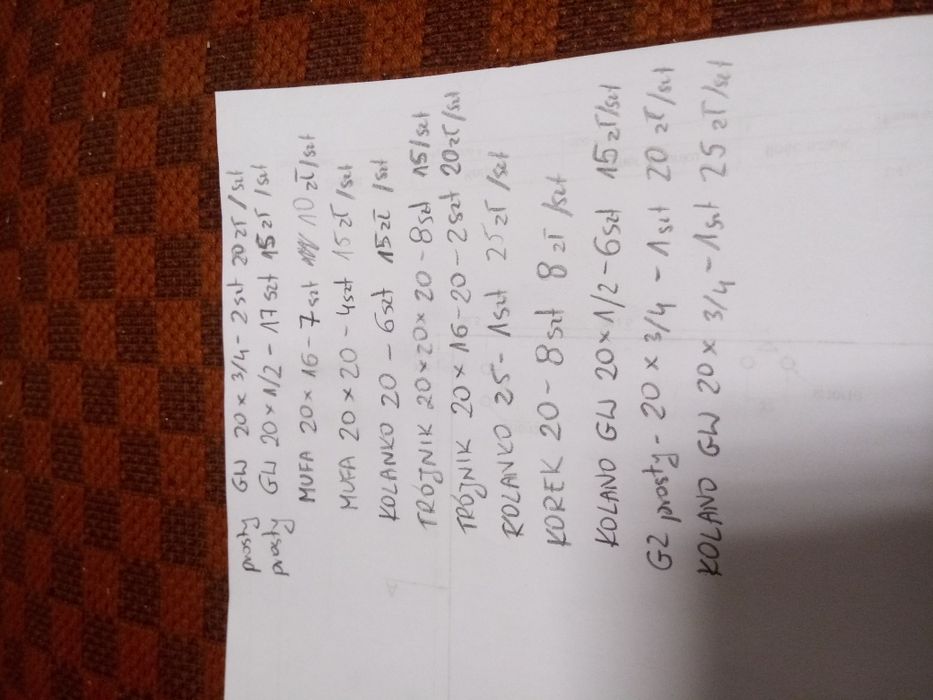 prosty GW 20 x 3/4 - 2szt 20zł/szt
prosty GW 20 x 1/2 - 17szt 15zł/szt
MUFA 20 x 16 - 7szt 10zł/szt
MUFA 20 x 20 - 4szt 15zł/szt
KOLANKO 20 - 6szt 15zł/szt
TRÓJNIK 20x20x20 - 8szt 15/szt
TRÓJNIK 20x16-20 - 2szt 20zł/szt
KOLANKO 25 - 1szt 25zł/szt
KOREK 20 - 8szt 8zł/szt
KOLANO GW 20x1/2 - 6szt 15zł/szt
GZ prosty - 20x3/4 - 1szt 20zł/szt
KOLANO GW 20x3/4 - 1szt 25zł/szt